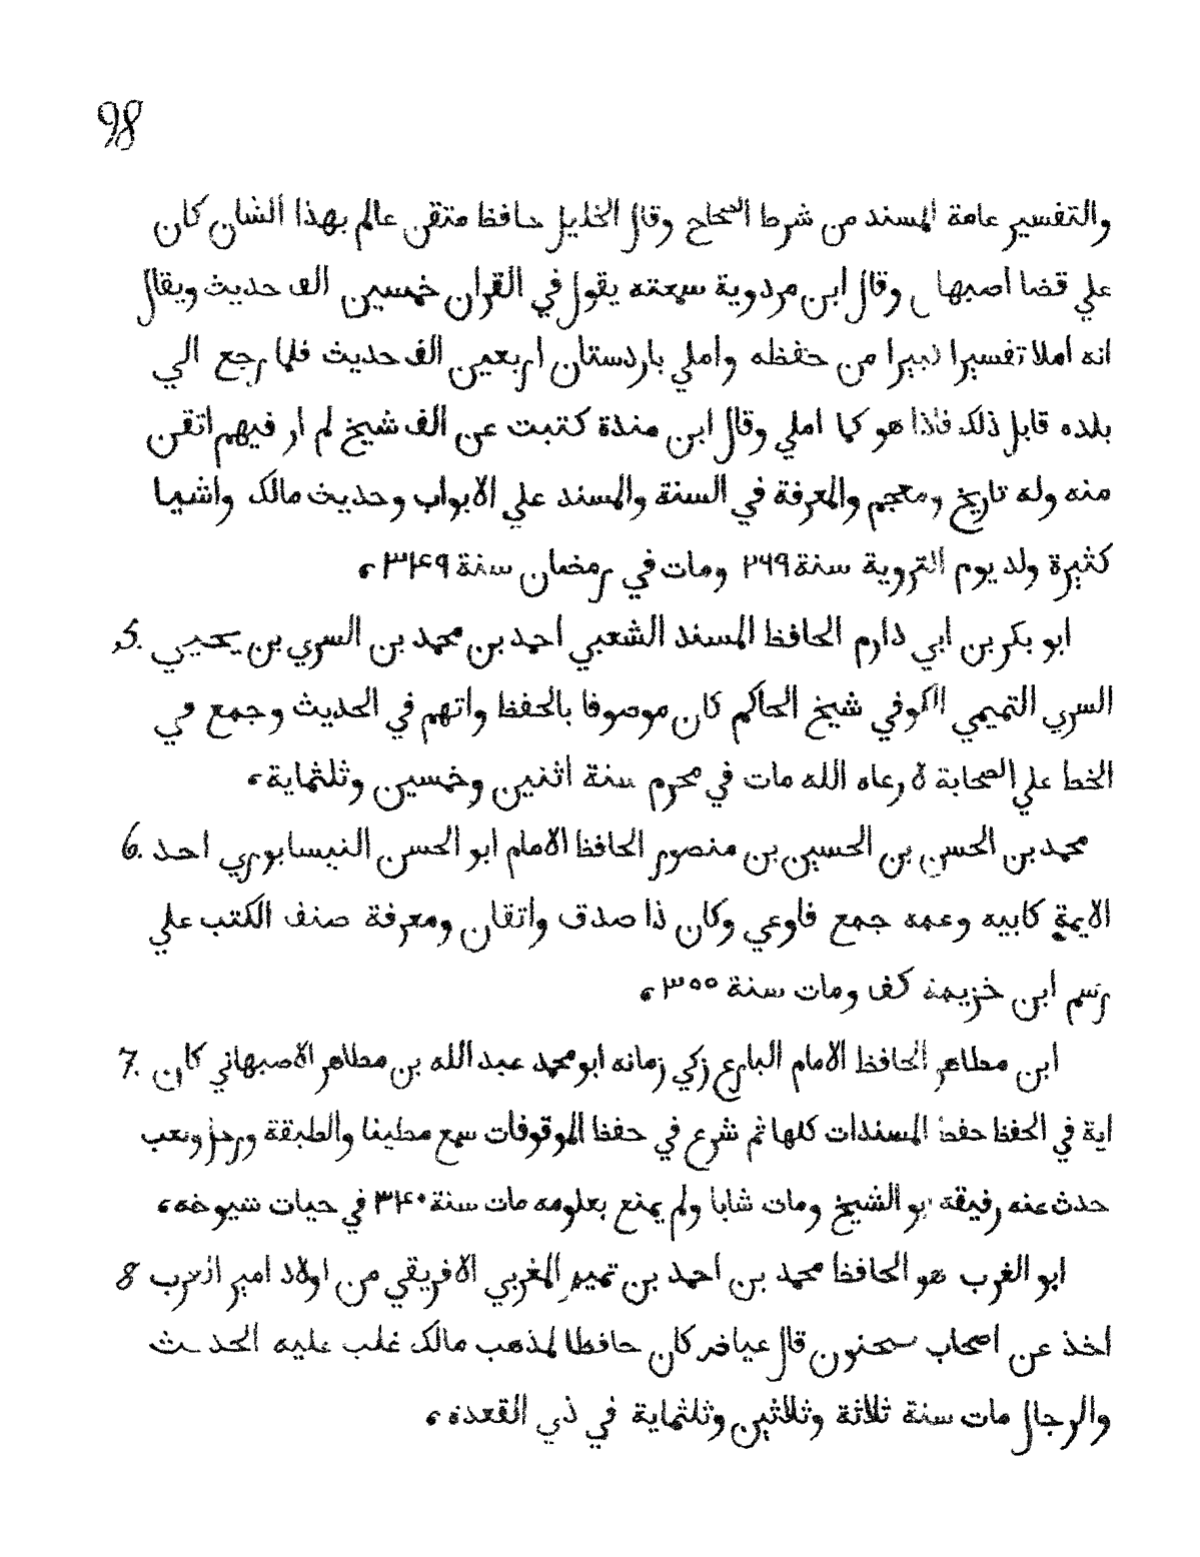 98
والتفسير عامة المسند من شرط الصحاح وقال الخليل حافظ متقن عالم بهذا الشان كان
علي قضا اصبهان وقال ابن مردوية سمعته يقول في القران خمسين الف حديث ويقال
انه املا تفسيرا كبيرا من حفظه واملي باردستان اربعين الف حديث فلما رجع الي
بلده قابل ذلك فاذا هو كما املي وقال ابن مندة كتبت عن الف شيخ لم ار فيهم اتقن
منه وله تاريخ ومعجم والمعرفة في السنة والمسند علي الابواب وحديث مالك واشيا
كثيرة ولد يوم التروية سنة ٢٦٩ ومات في رمضان سنة ٣٤٩،
5. ابو بكر بن ابي دارم الحافظ المسند الشعبي احمد بن محمد بن السري بن يحيي
السري التميمي الكوفي شيخ الحاكم كان موصوفا بالحفظ واتهم في الحديث وجمع في
الخط علي الصحابة لا رعاه الله مات في محرم سنة اثنين وخمسين وثلثماية،
6. محمد بن الحسن بن الحسين بن منصور الحافظ الامام ابو الحسن النيسابوري احد
الايمة كابيه وعمه جمع فاوعي وكان ذا صدق واتقان ومعرفة صنف الكتب علي
رسم ابن خزيمة كف ومات سنة ٣٥٥،
7. ابن مظاهر الحافظ الامام البارع زكي زمانه ابو محمد عبد الله بن مظاهر الاصبهاني كان
اية في الحفظ حفظ المسندات كلها ثم شرع في حفظ الموقوفات سمع مطينا والطبقة ورحل وتعب
حدث عنه رفيقة ابو الشيخ ومات شابا ولم يمنع بعلومه مات سنة ٣٤٠ في حيات شيوخه،
8 ابو الغرب هو الحافظ محمد بن احمد بن تميم المغربي الافريقي من اولاد امير العرب
اخذ عن اصحاب سحنون قال عياض كان حافظا لمذهب مالك غلب عليه الحديث
والرجال مات سنة ثلاثة وثلاثين وثلثماية في ذي القعدة،